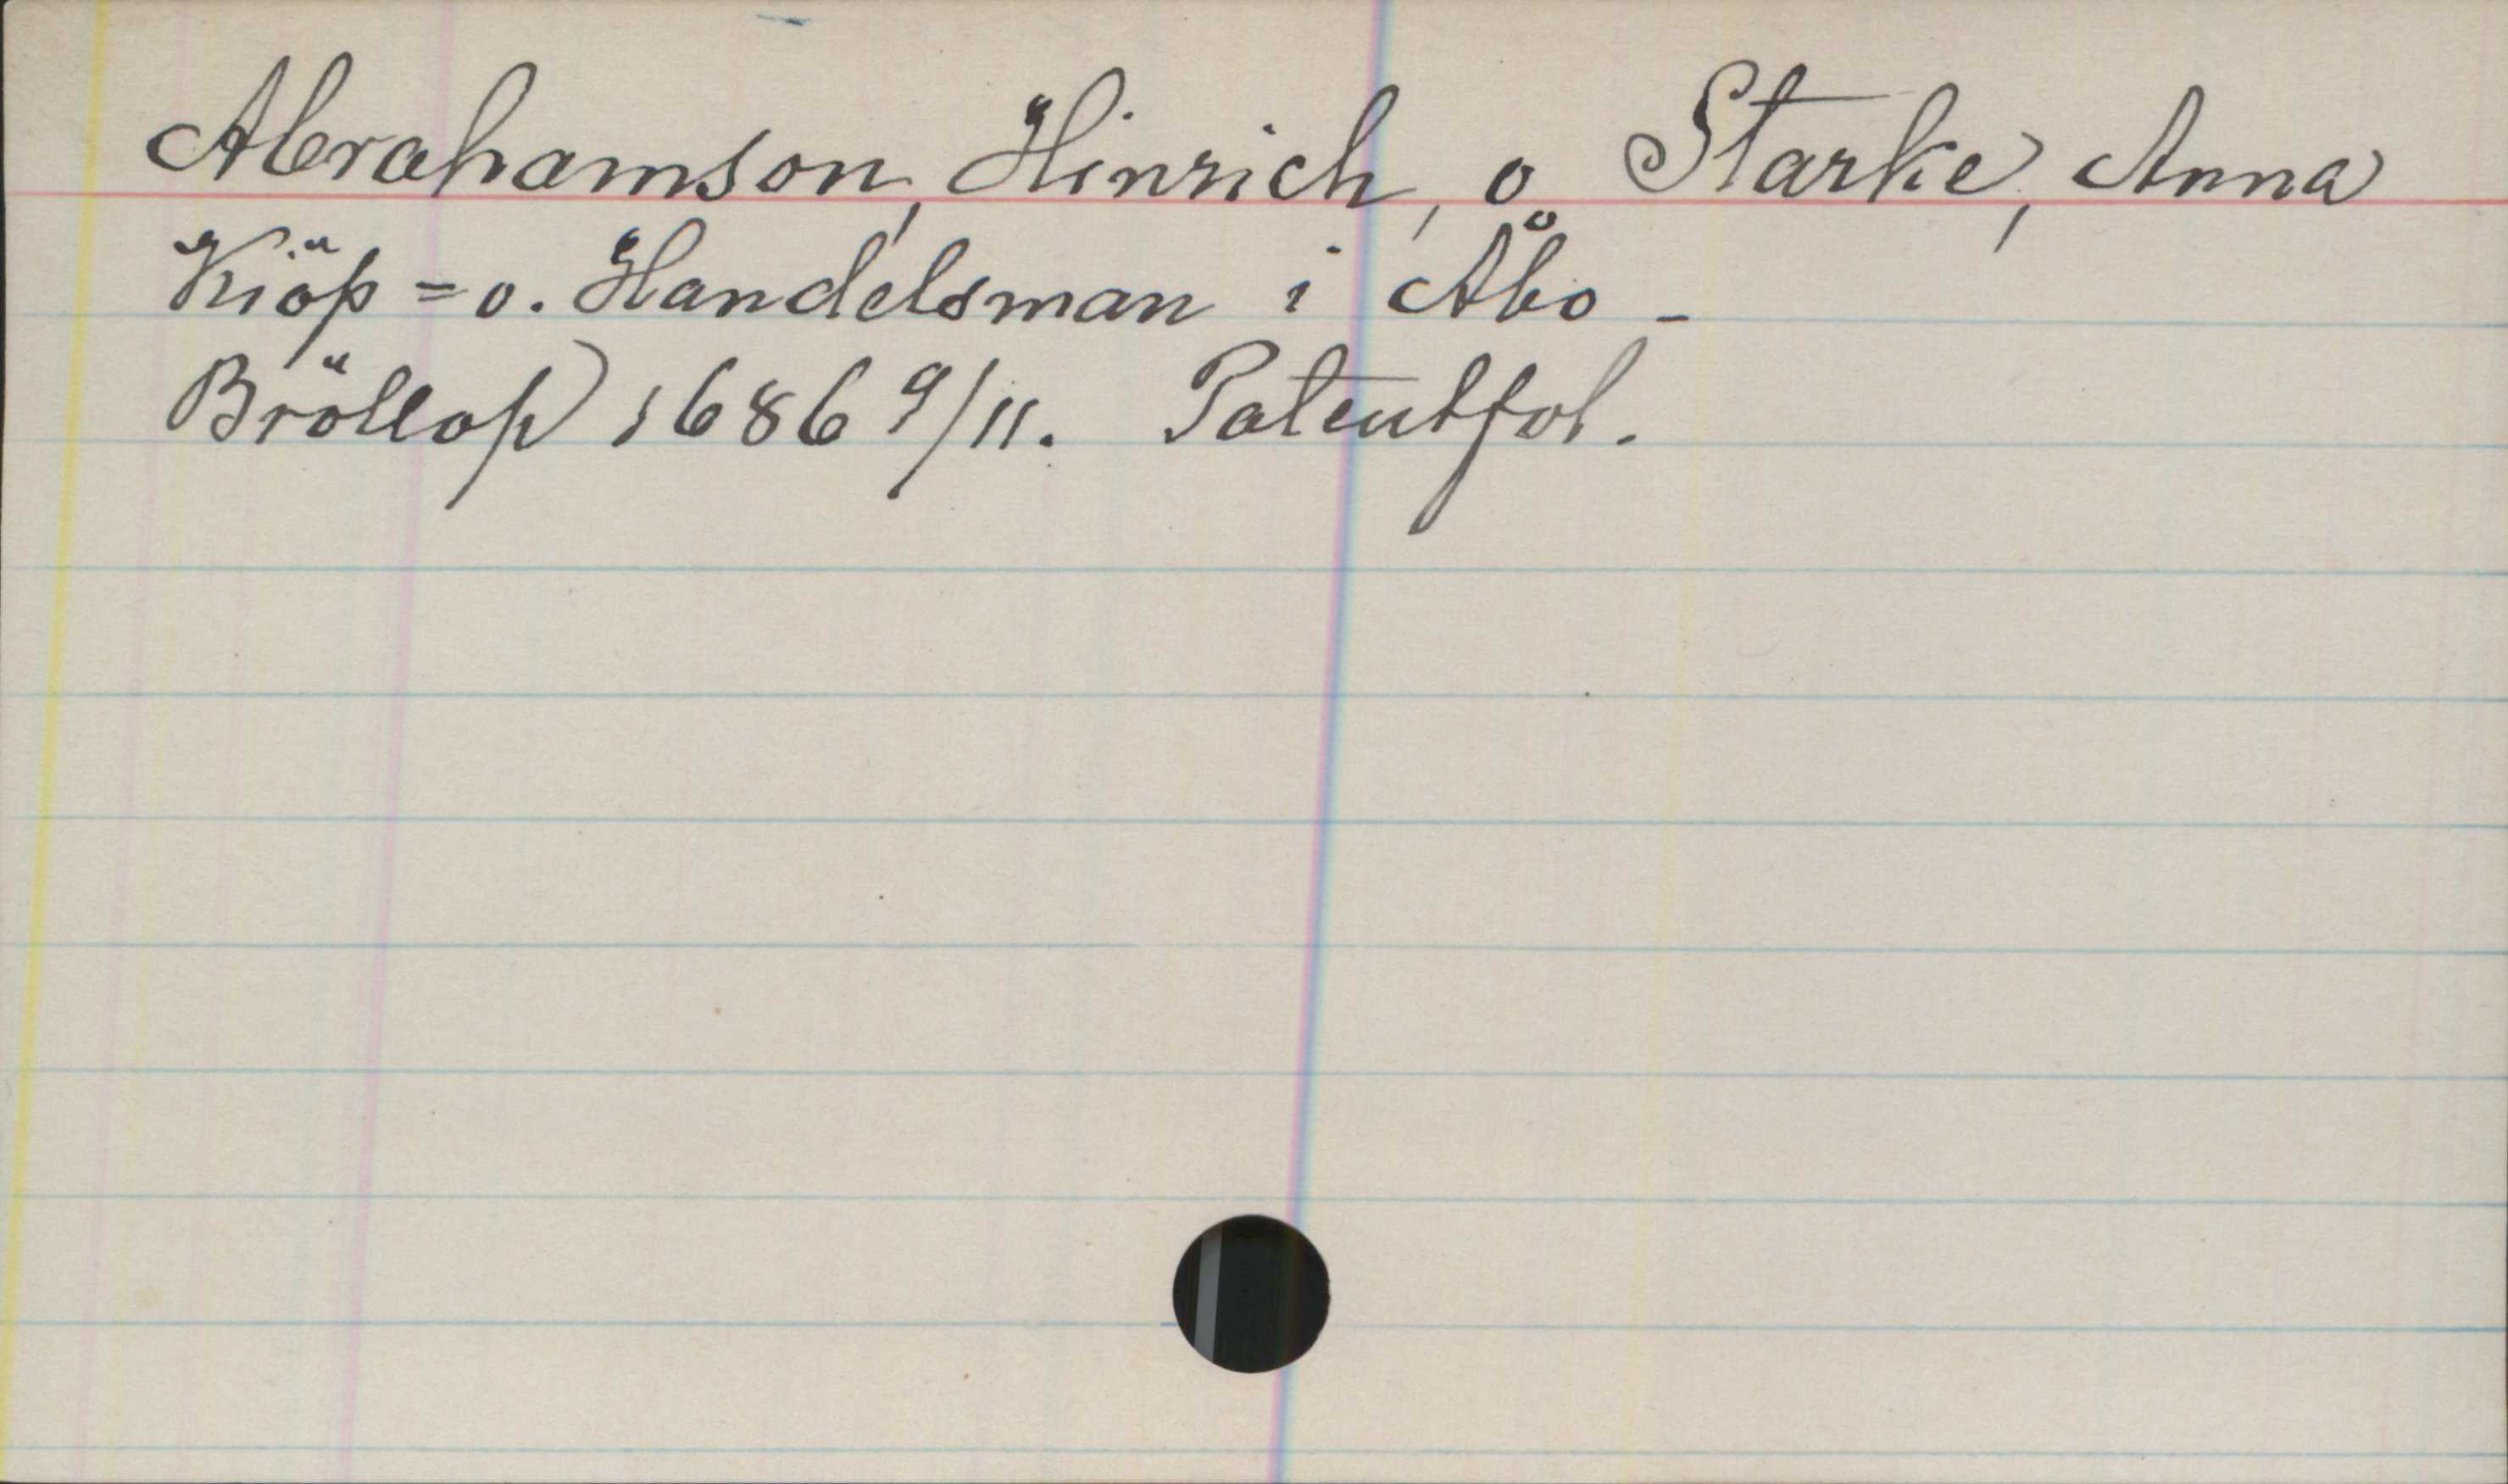 Abrahamson, Hinrich, o. Starke, Anna
Kiöp = o. Handelsman i Åbo -
Bröllop 1686 9/11. Patentfol.